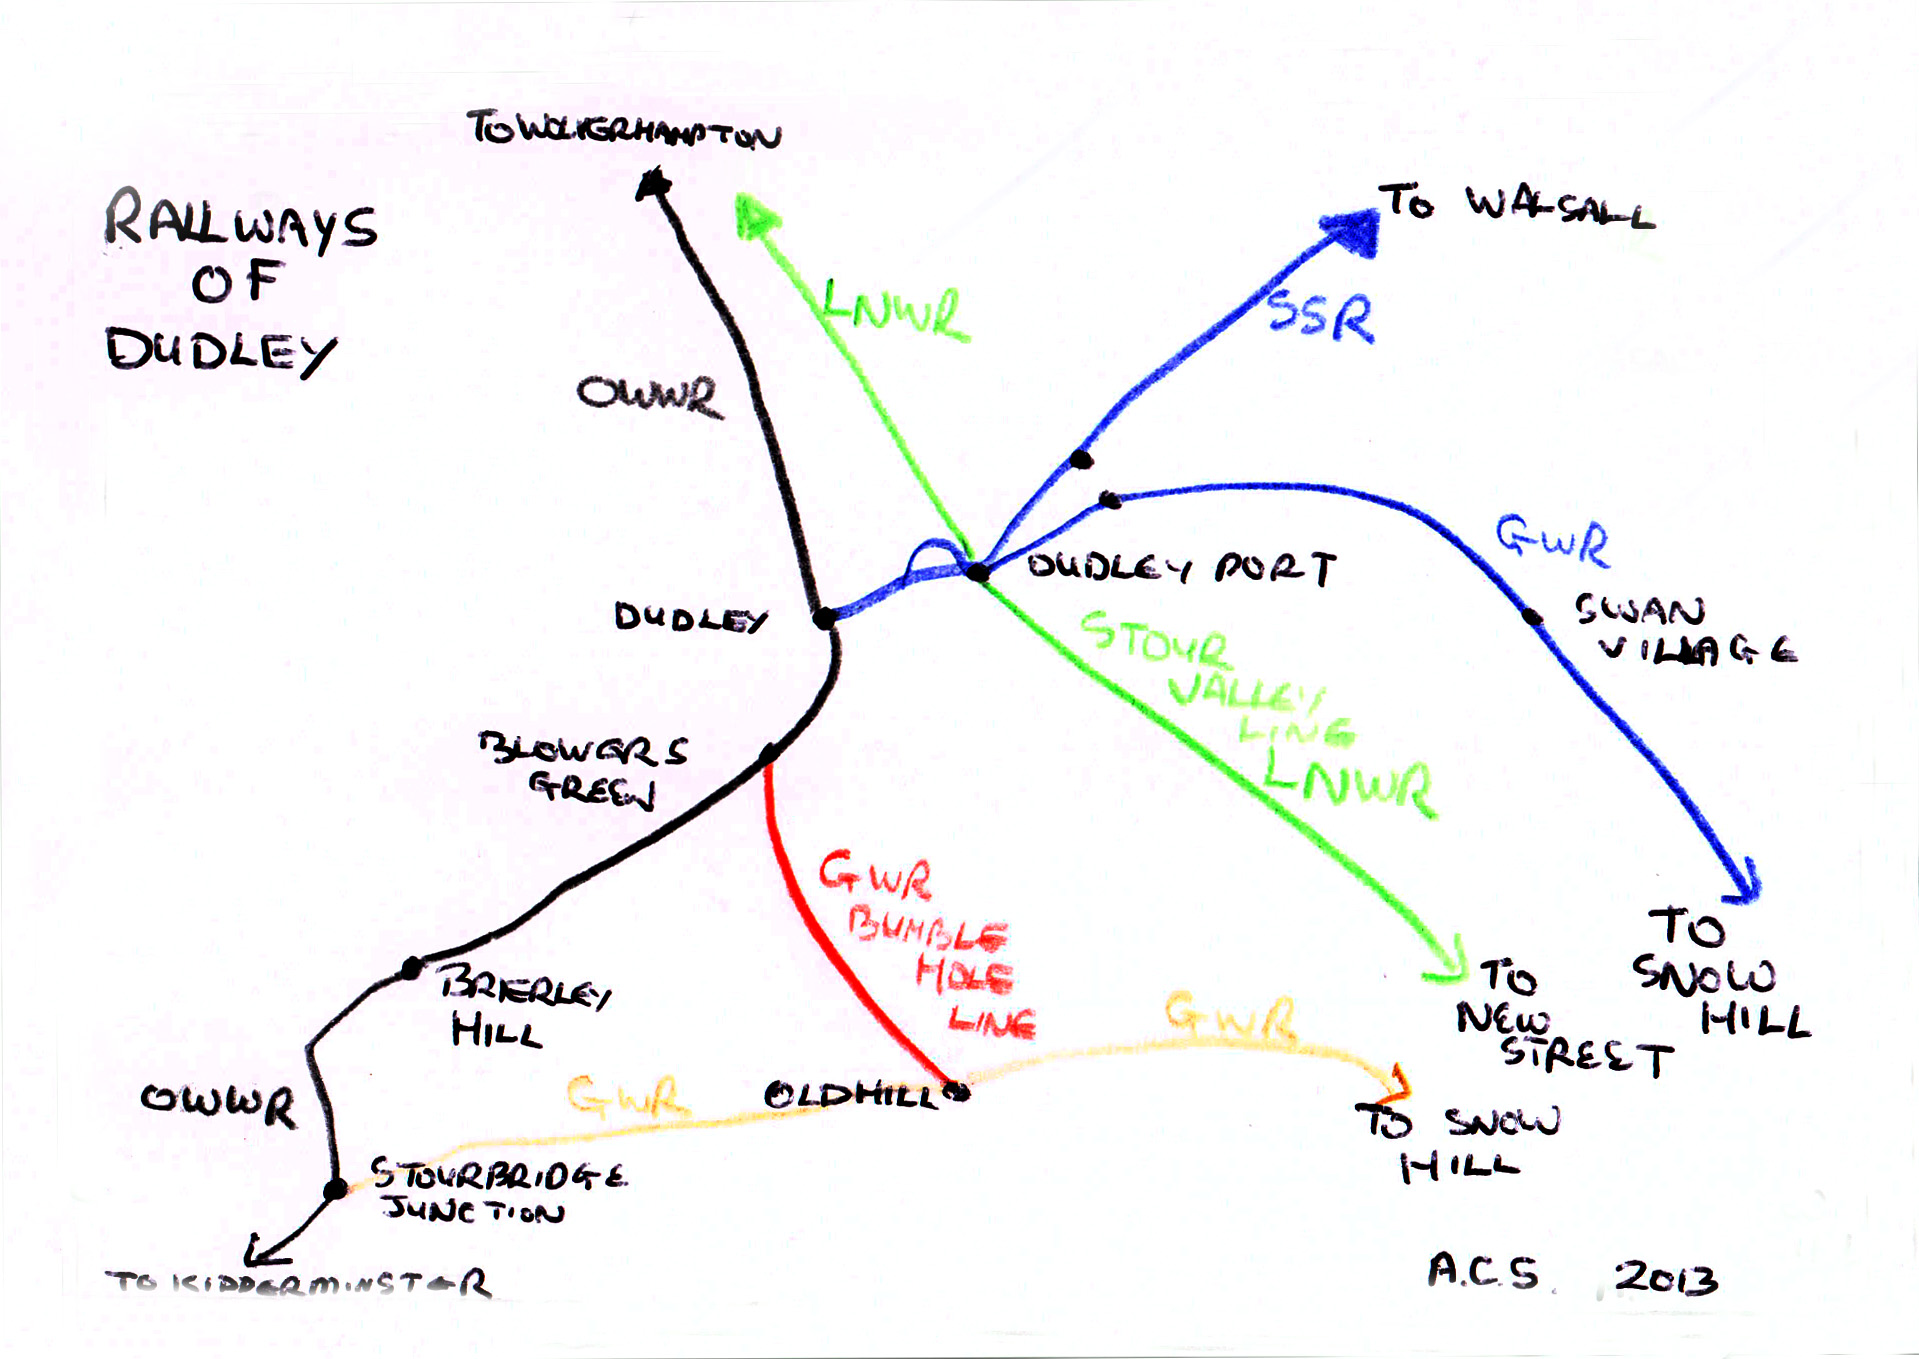 TO WOLVERHAMPTON
RAILWAYS
OF
DUDLEY
TO WALSALL
LNWR
SSR
OWWR
GWR
DUDLEY PORT
DUDLEY
SWAN
VILLAGE
STOUR
VALLEY
LINE
LNWR
BLOWERS
GREEN
GWR
BUMBLE
HOLE
LINE
TO
SNOW
HILL
TO
NEW
STREET
BRIERLEY
HILL
GWR
OWWR
GWR
OLDHILL
TO SNOW
HILL
STOURBRIDGE
JUNCTION
TO KIDDERMINSTER
A.C.S. 2013